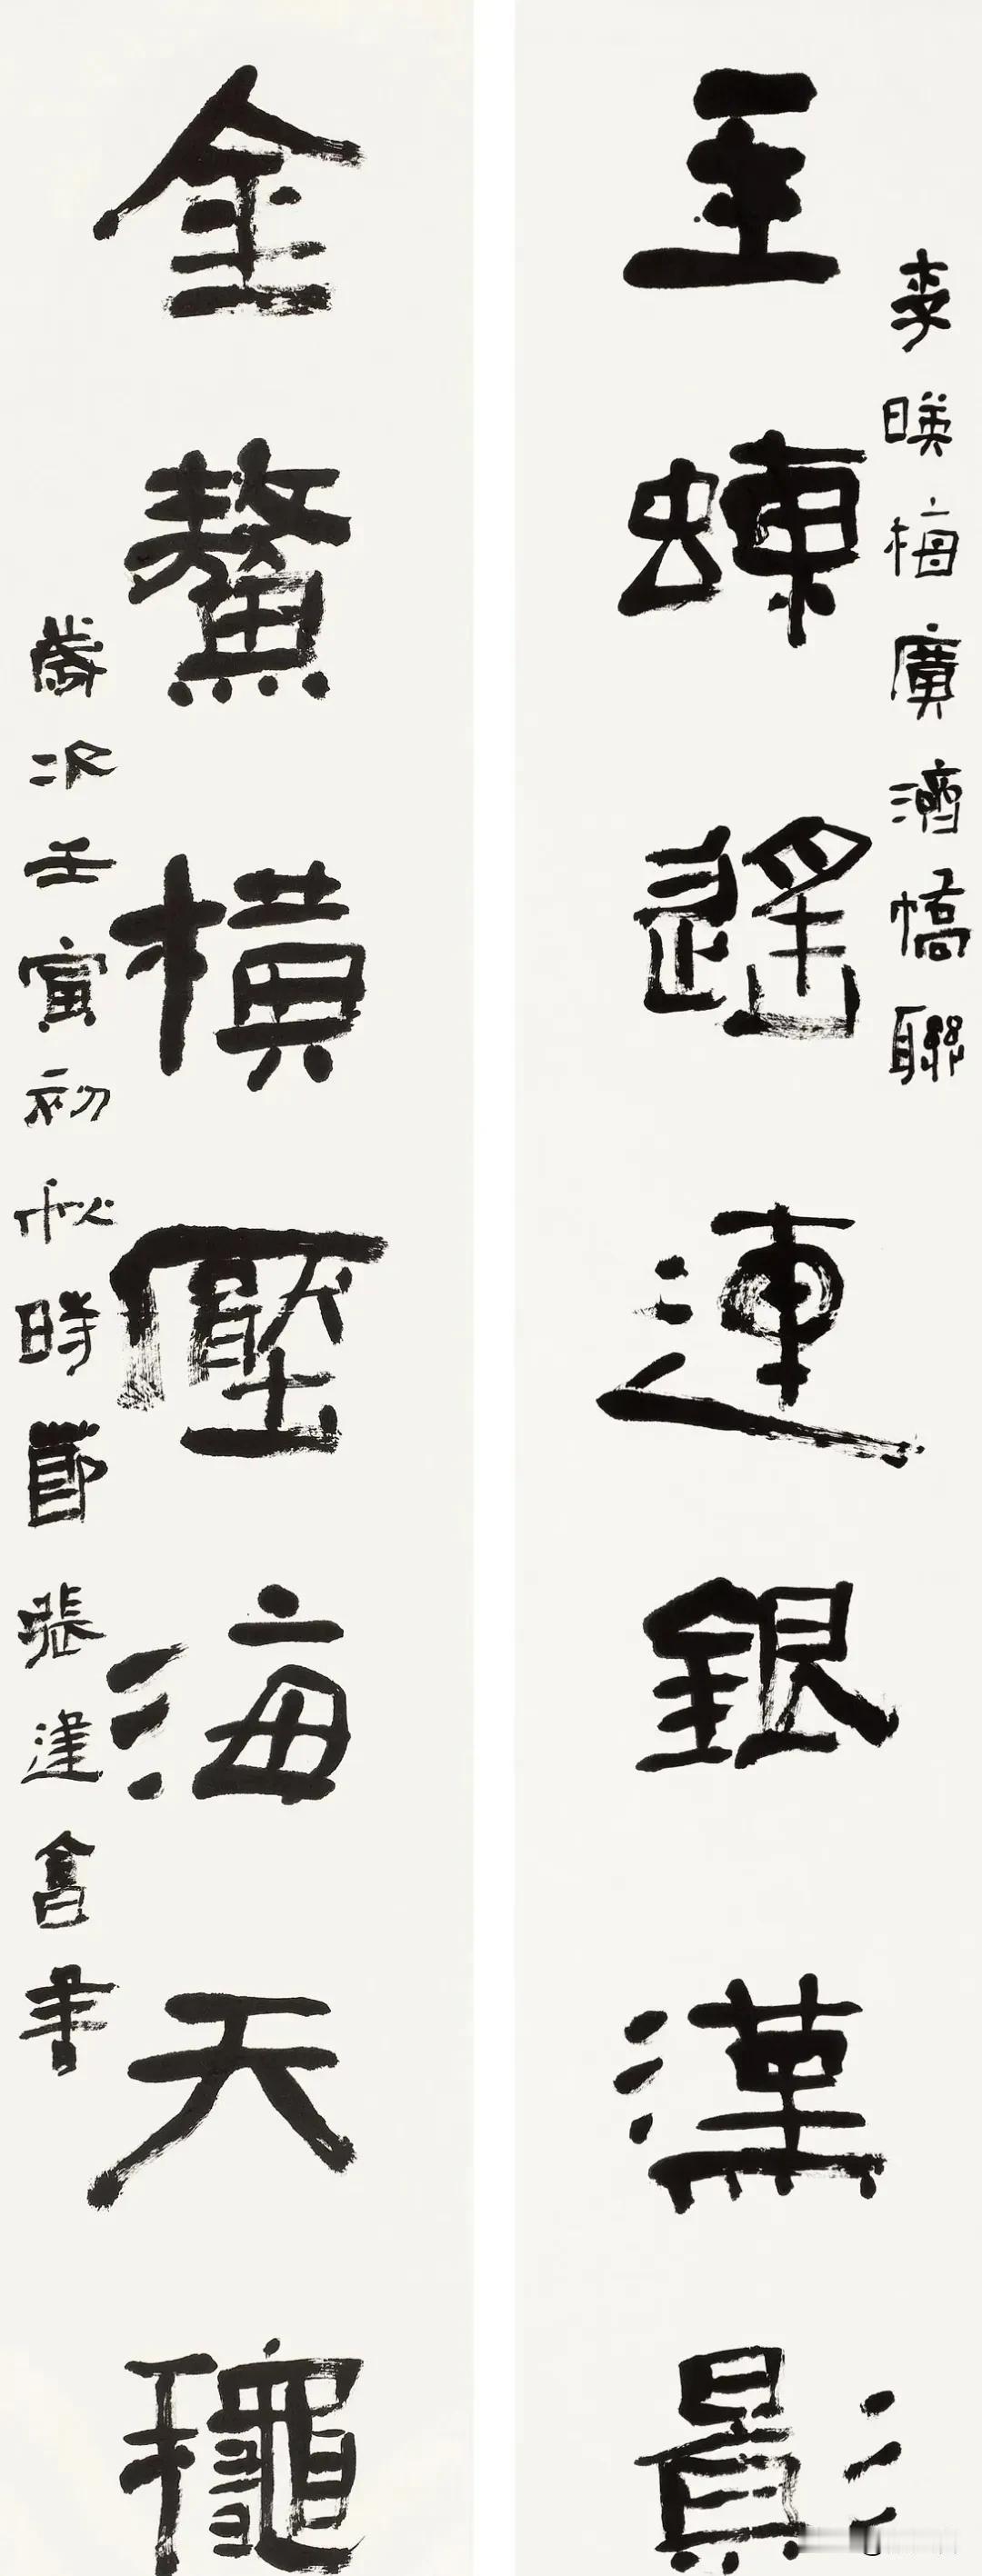 李暎梅廣濟橋聯
玉蝀遙連銀漢影
金鰲橫壓海天龝
歲次壬寅初秋時節張建會書